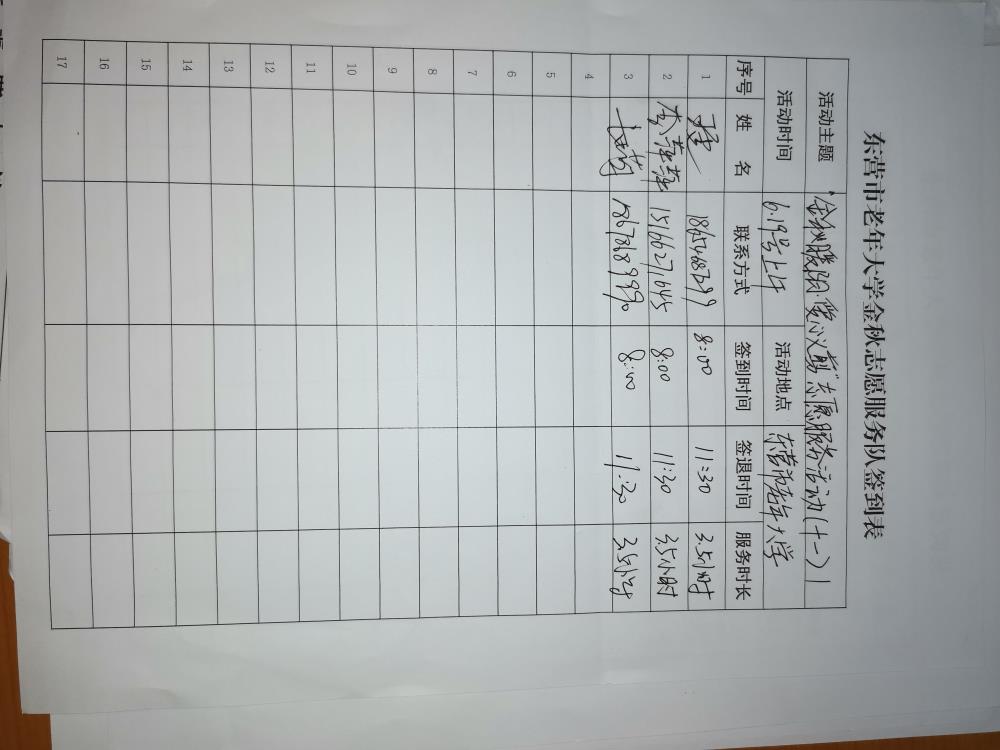 东营市老年大学金秋志愿服务队签到表
活动主题 “金秋暖阳·爱心义剪”志愿服务活动(十一)
活动时间 6.19号上午 活动地点 东营市老年大学
序号 姓名 联系方式 签到时间 签退时间 服务时长
1 8:00 11:30 3.5小时
2 李萍萍 15166271645 8:00 11:30 3.5小时
3 8:00 11:30 3.5小时
4
5
6
7
8
9
10
11
12
13
14
15
16
17